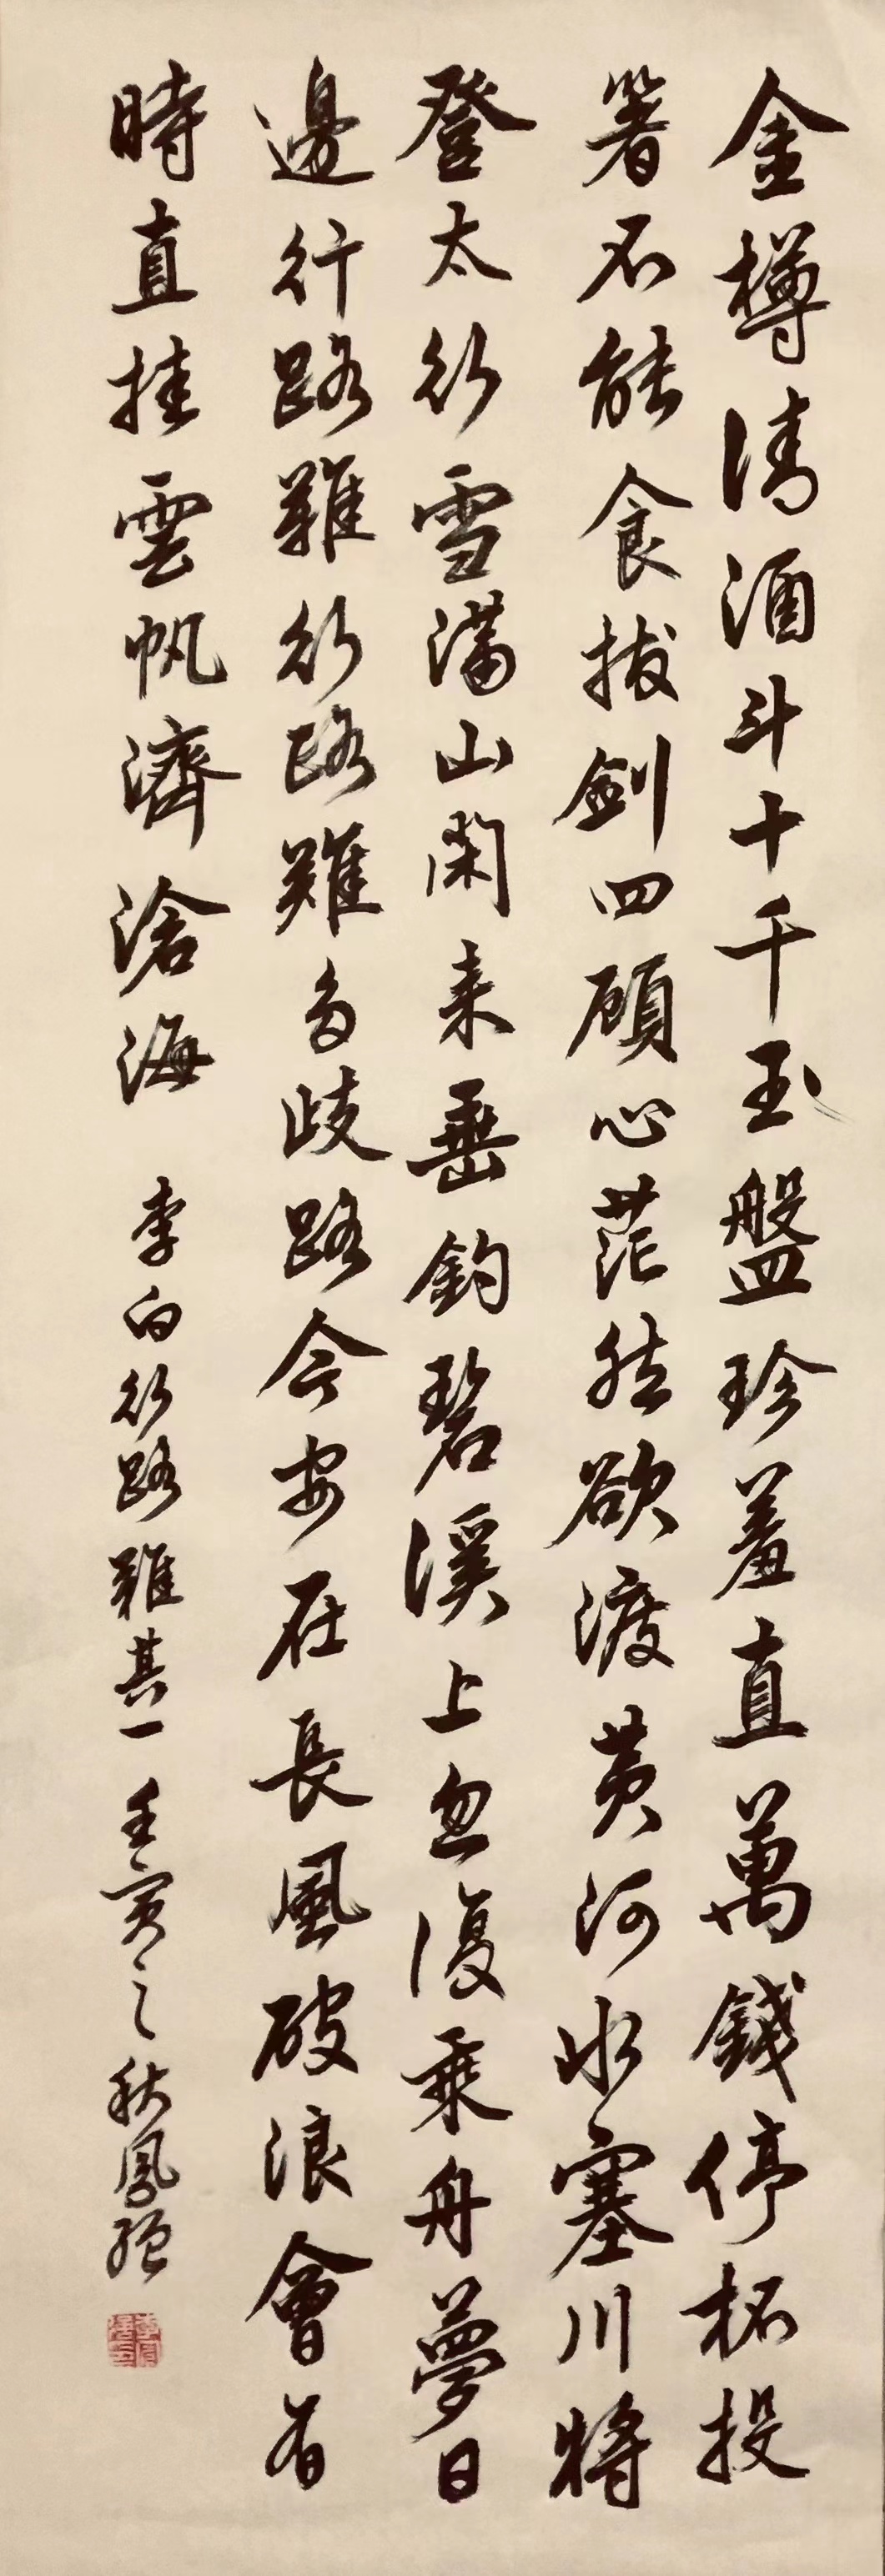 金樽清酒斗十千玉盤珍羞直萬錢停杯投
箸不能食拔劍四顧心茫然欲渡黃河冰塞川將
登太行雪滿山閑來垂釣碧溪上忽復乘舟夢日
邊行路難行路難多歧路今安在長風破浪會有
時直挂雲帆濟滄海 李白行路難其一 壬寅之秋鳳強